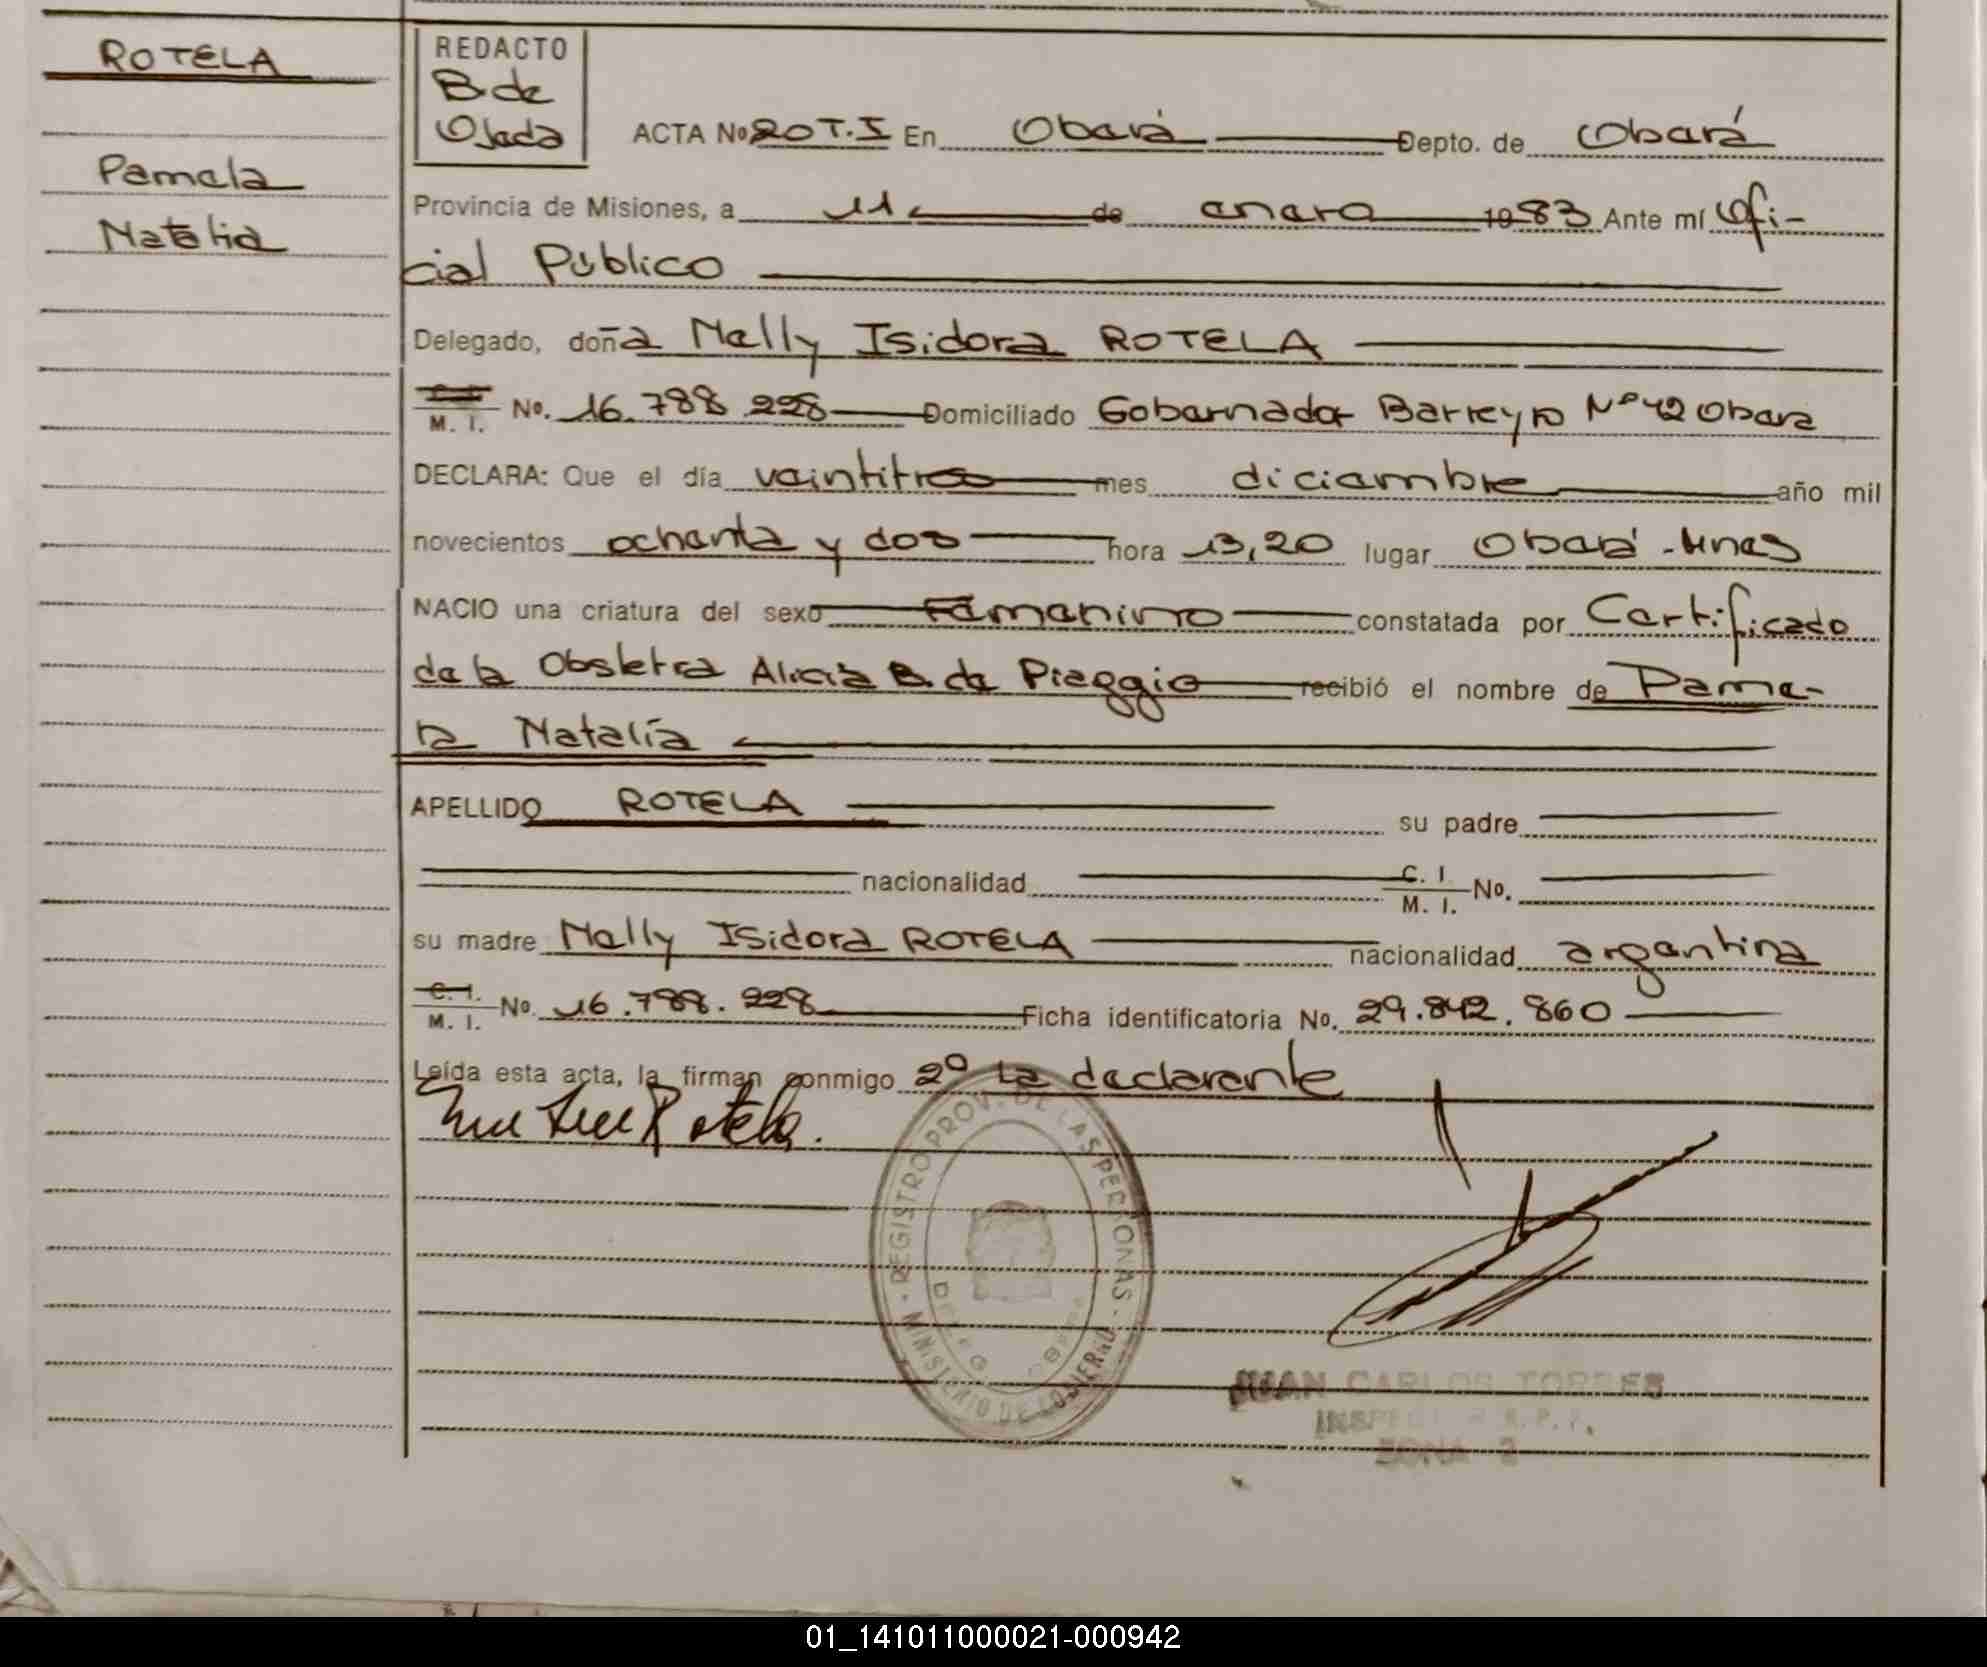 ROTELA
Pamela
Natalia
REDACTO
B. de
Ojeda
ACTA No 20 T. I En Oberá Depto. de Oberá
Provincia de Misiones, a 11 de enero 1983 Ante mí Ofi-
cial Público
Delegado, doña Nelly Isidora ROTELA
M. I. No. 16.788.228 Domiciliado Gobernador Barreyro Nº 42 Oberá
DECLARA: Que el día veintitres mes diciembre año mil
novecientos ochenta y dos hora 13,20 lugar Oberá - Mnes
NACIO una criatura del sexo Femenino constatada por Certificado
de la Obstetra Alicia B. de Piaggio recibió el nombre de Pame-
la Natalía
APELLIDO ROTELA su padre
nacionalidad C. I. M. I. No.
su madre Nelly Isidora ROTELA nacionalidad argentina
C. I. M. I. No. 16.788.228 Ficha identificatoria No. 29.842.860
Leída esta acta, la firman conmigo 2º La declarante
Rotela.
REGISTRO PROV. DE LAS PERSONAS
MINISTERIO DE GOBIERNO
JUAN CARLOS TORRES
ZONA 2
01_141011000021-000942